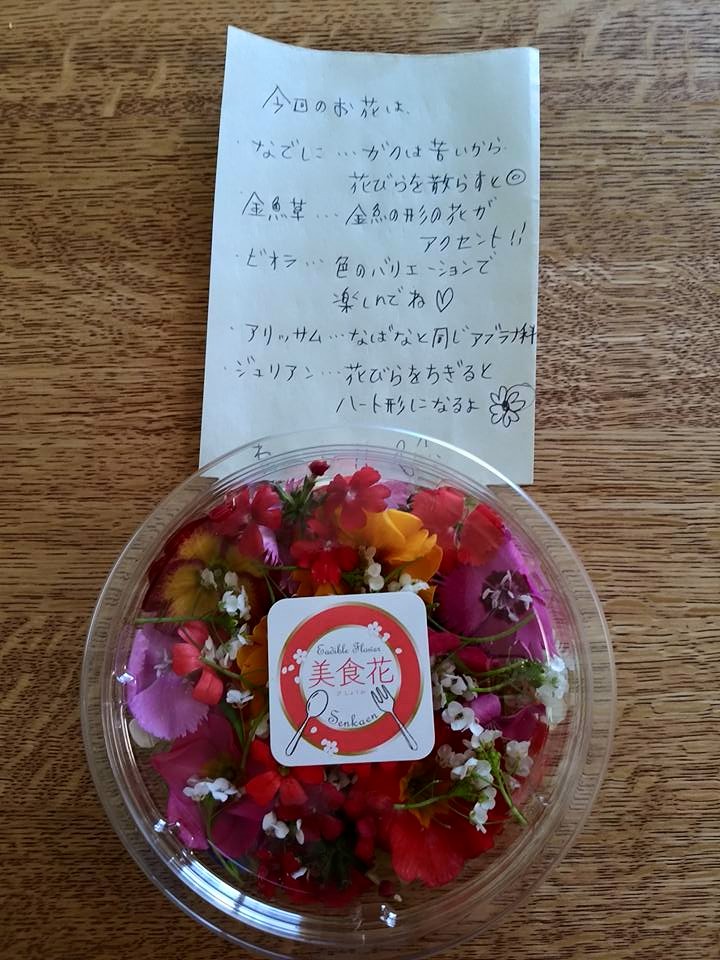 今回のお花は、
・なでしこ…ガクは苦いから
花びらを散らすと◎
・金魚草…金魚の形の花が
アクセント!!
・ビオラ…色のバリエーションで
楽しんでね♡
・アリッサム…なばなと同じアブラナ科
・ジュリアン…花びらをちぎると
ハート形になるよ
Eadible Flower
美食花
びしょくか
Senkaen